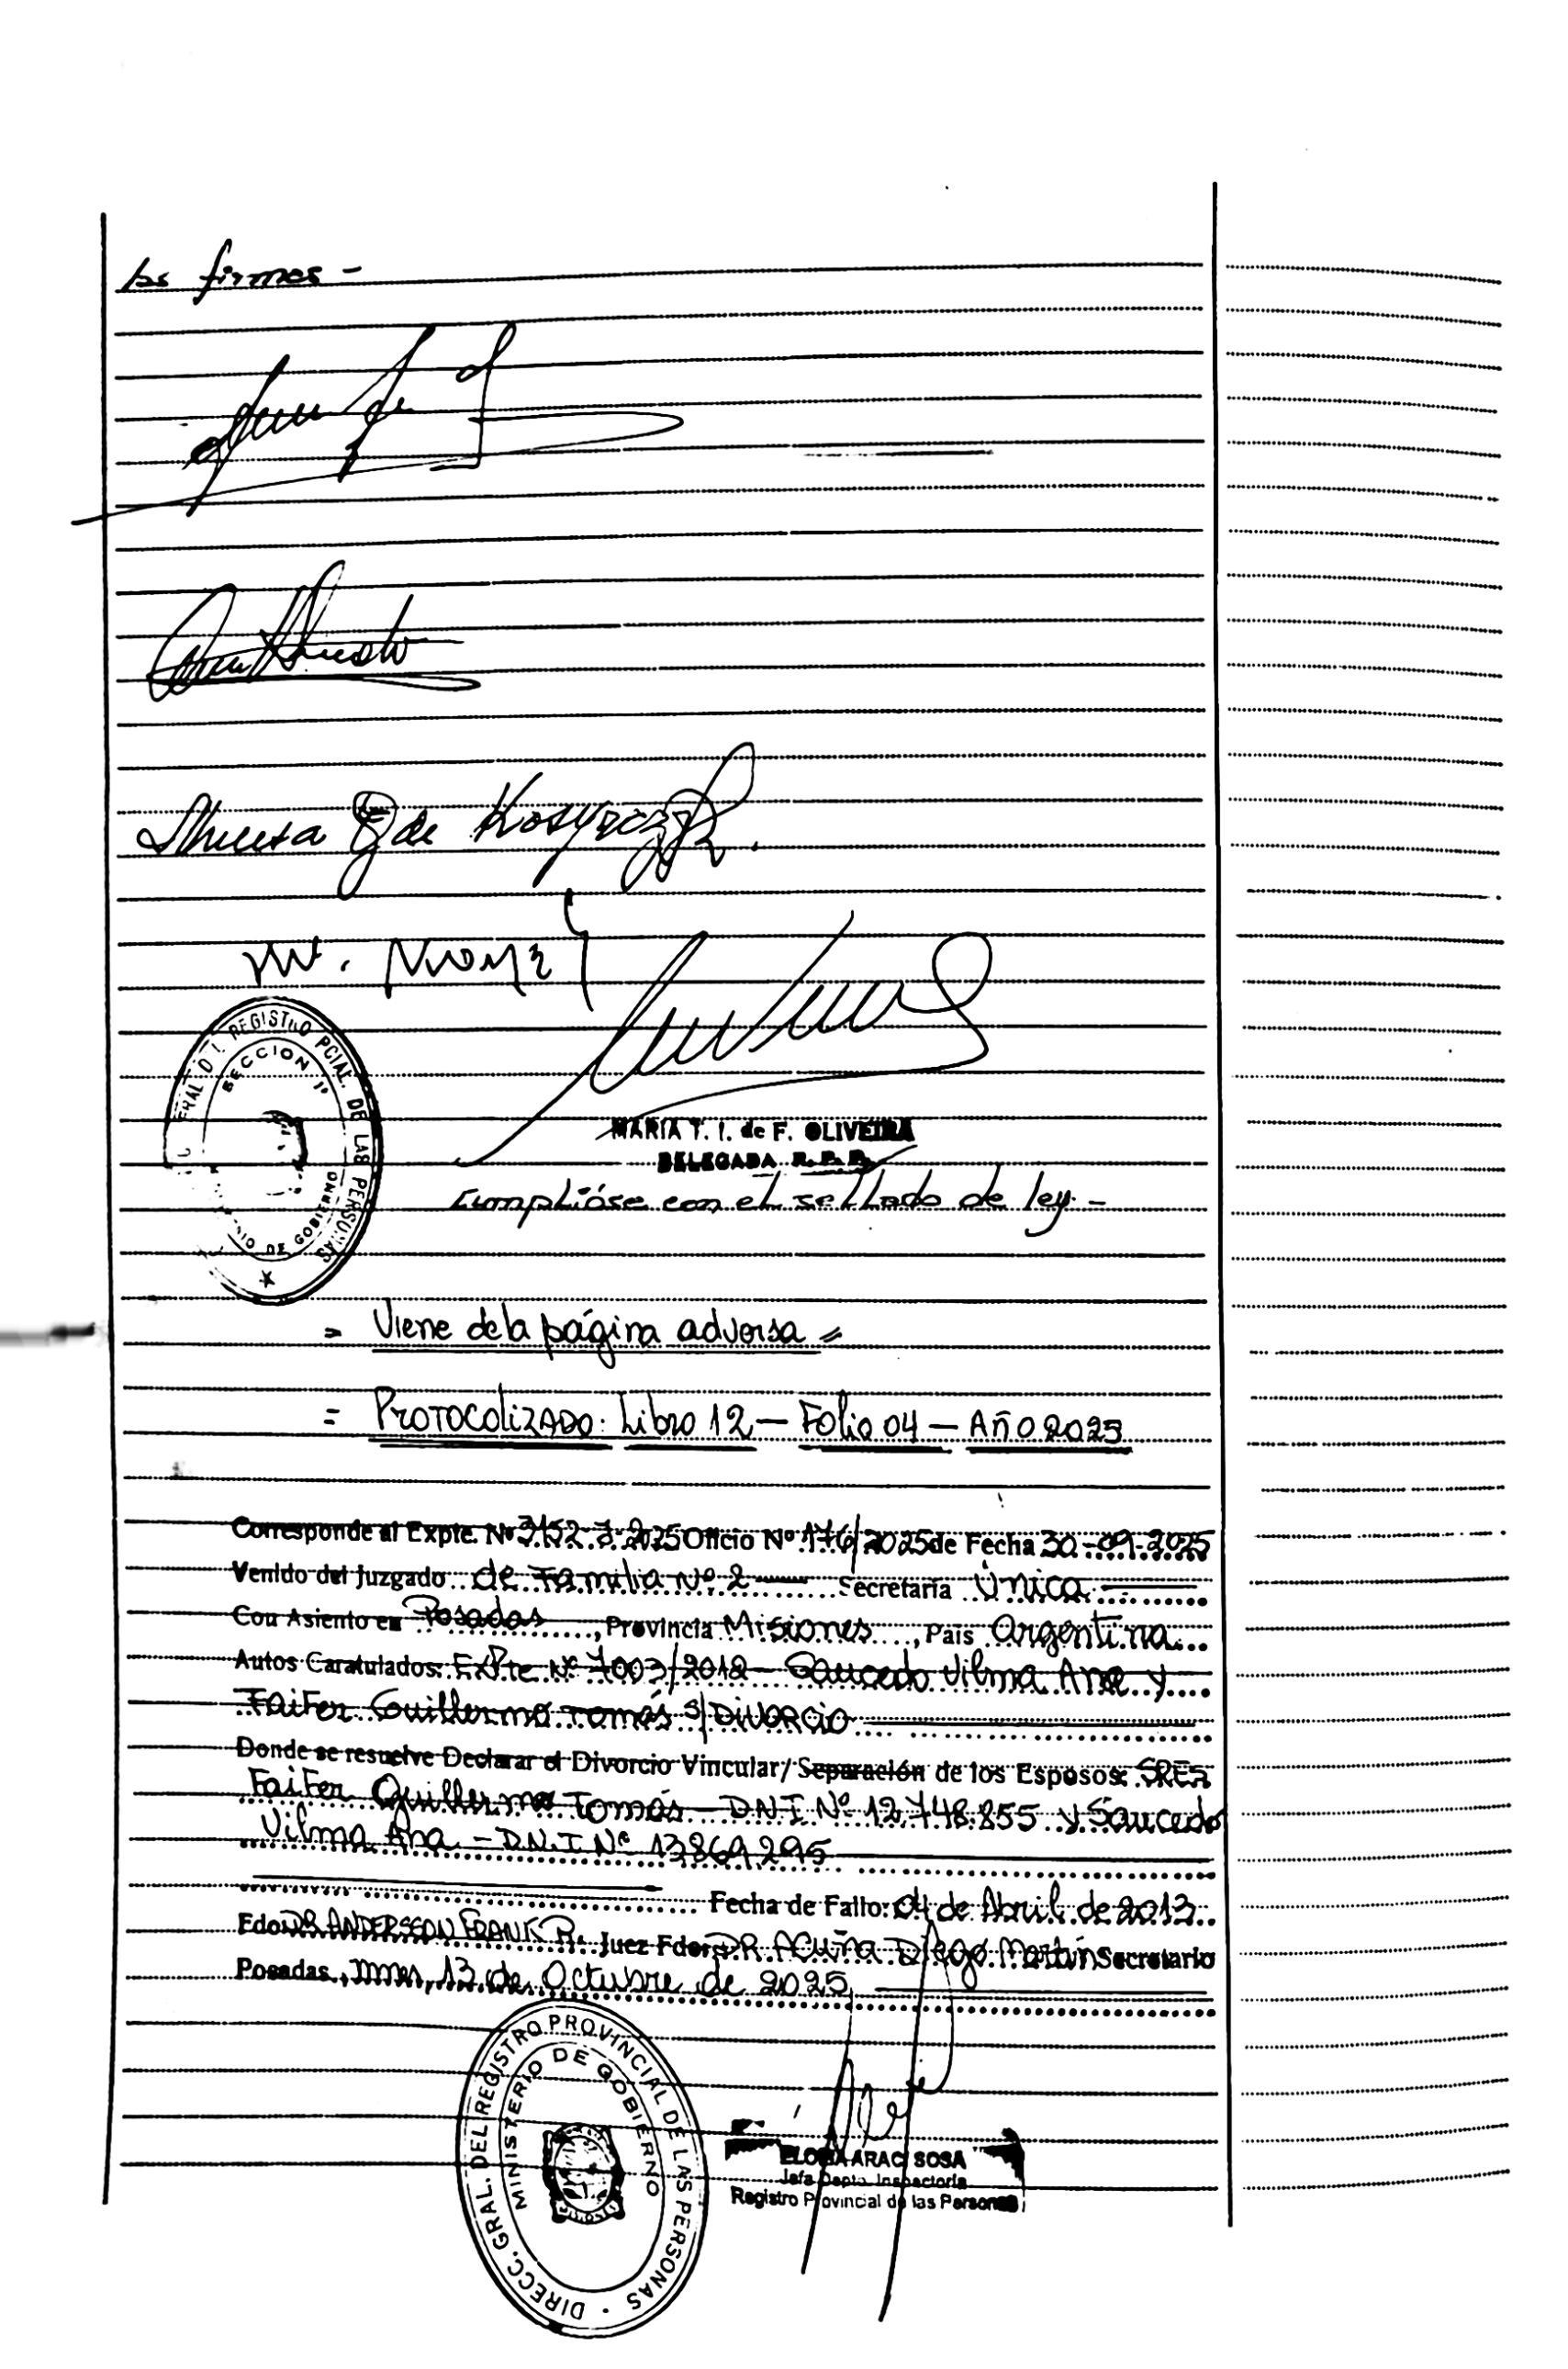 las firmas -
Theresa E de Kosyrczyk.
MARIA T. I. de F. OLIVEIRA
DELEGADA R. P. P.
REGISTRO PCIAL. DE LAS PERSONAS
SECCION 1ª
DE GOBIERNO
Cumplióse con el sellado de ley. -
= Viene de la página adversa =
= PROTOCOLIZADO: Libro 12 - Folio 04 - Año 2025
Corresponde al Expte. Nº 3152-7-2025 Oficio Nº 176/2025 de Fecha 30-09-2025
Venido del Juzgado de Familia Nº 2 Secretaría Única
Con Asiento en Posadas, Provincia Misiones, País Argentina
Autos Caratulados: EXPte Nº 7003/2012 - Saucedo Vilma Ana y
Faifer Guillermo Tomás s/DIVORCIO
Donde se resuelve Declarar el Divorcio Vincular/Separación de los Esposos: SRES
Faifer Guillermo Tomás - D.N.I Nº 12.748.855 y Saucedo
Vilma Ana - D.N.I Nº 13869.295
Fecha de Fallo: 04 de Abril de 2013
Fdo: DR ANDERSSON FRANK R. Juez Fdo: DR ACUÑA Diego Martín Secretario
Posadas, Mnes, 13 de Octubre de 2025
DIRECC. GRAL. DEL REGISTRO PROVINCIAL DE LAS PERSONAS
MINISTERIO DE GOBIERNO
ARACI SOSA
Jefa Depto. Inspectoría
Registro Provincial de las Personas